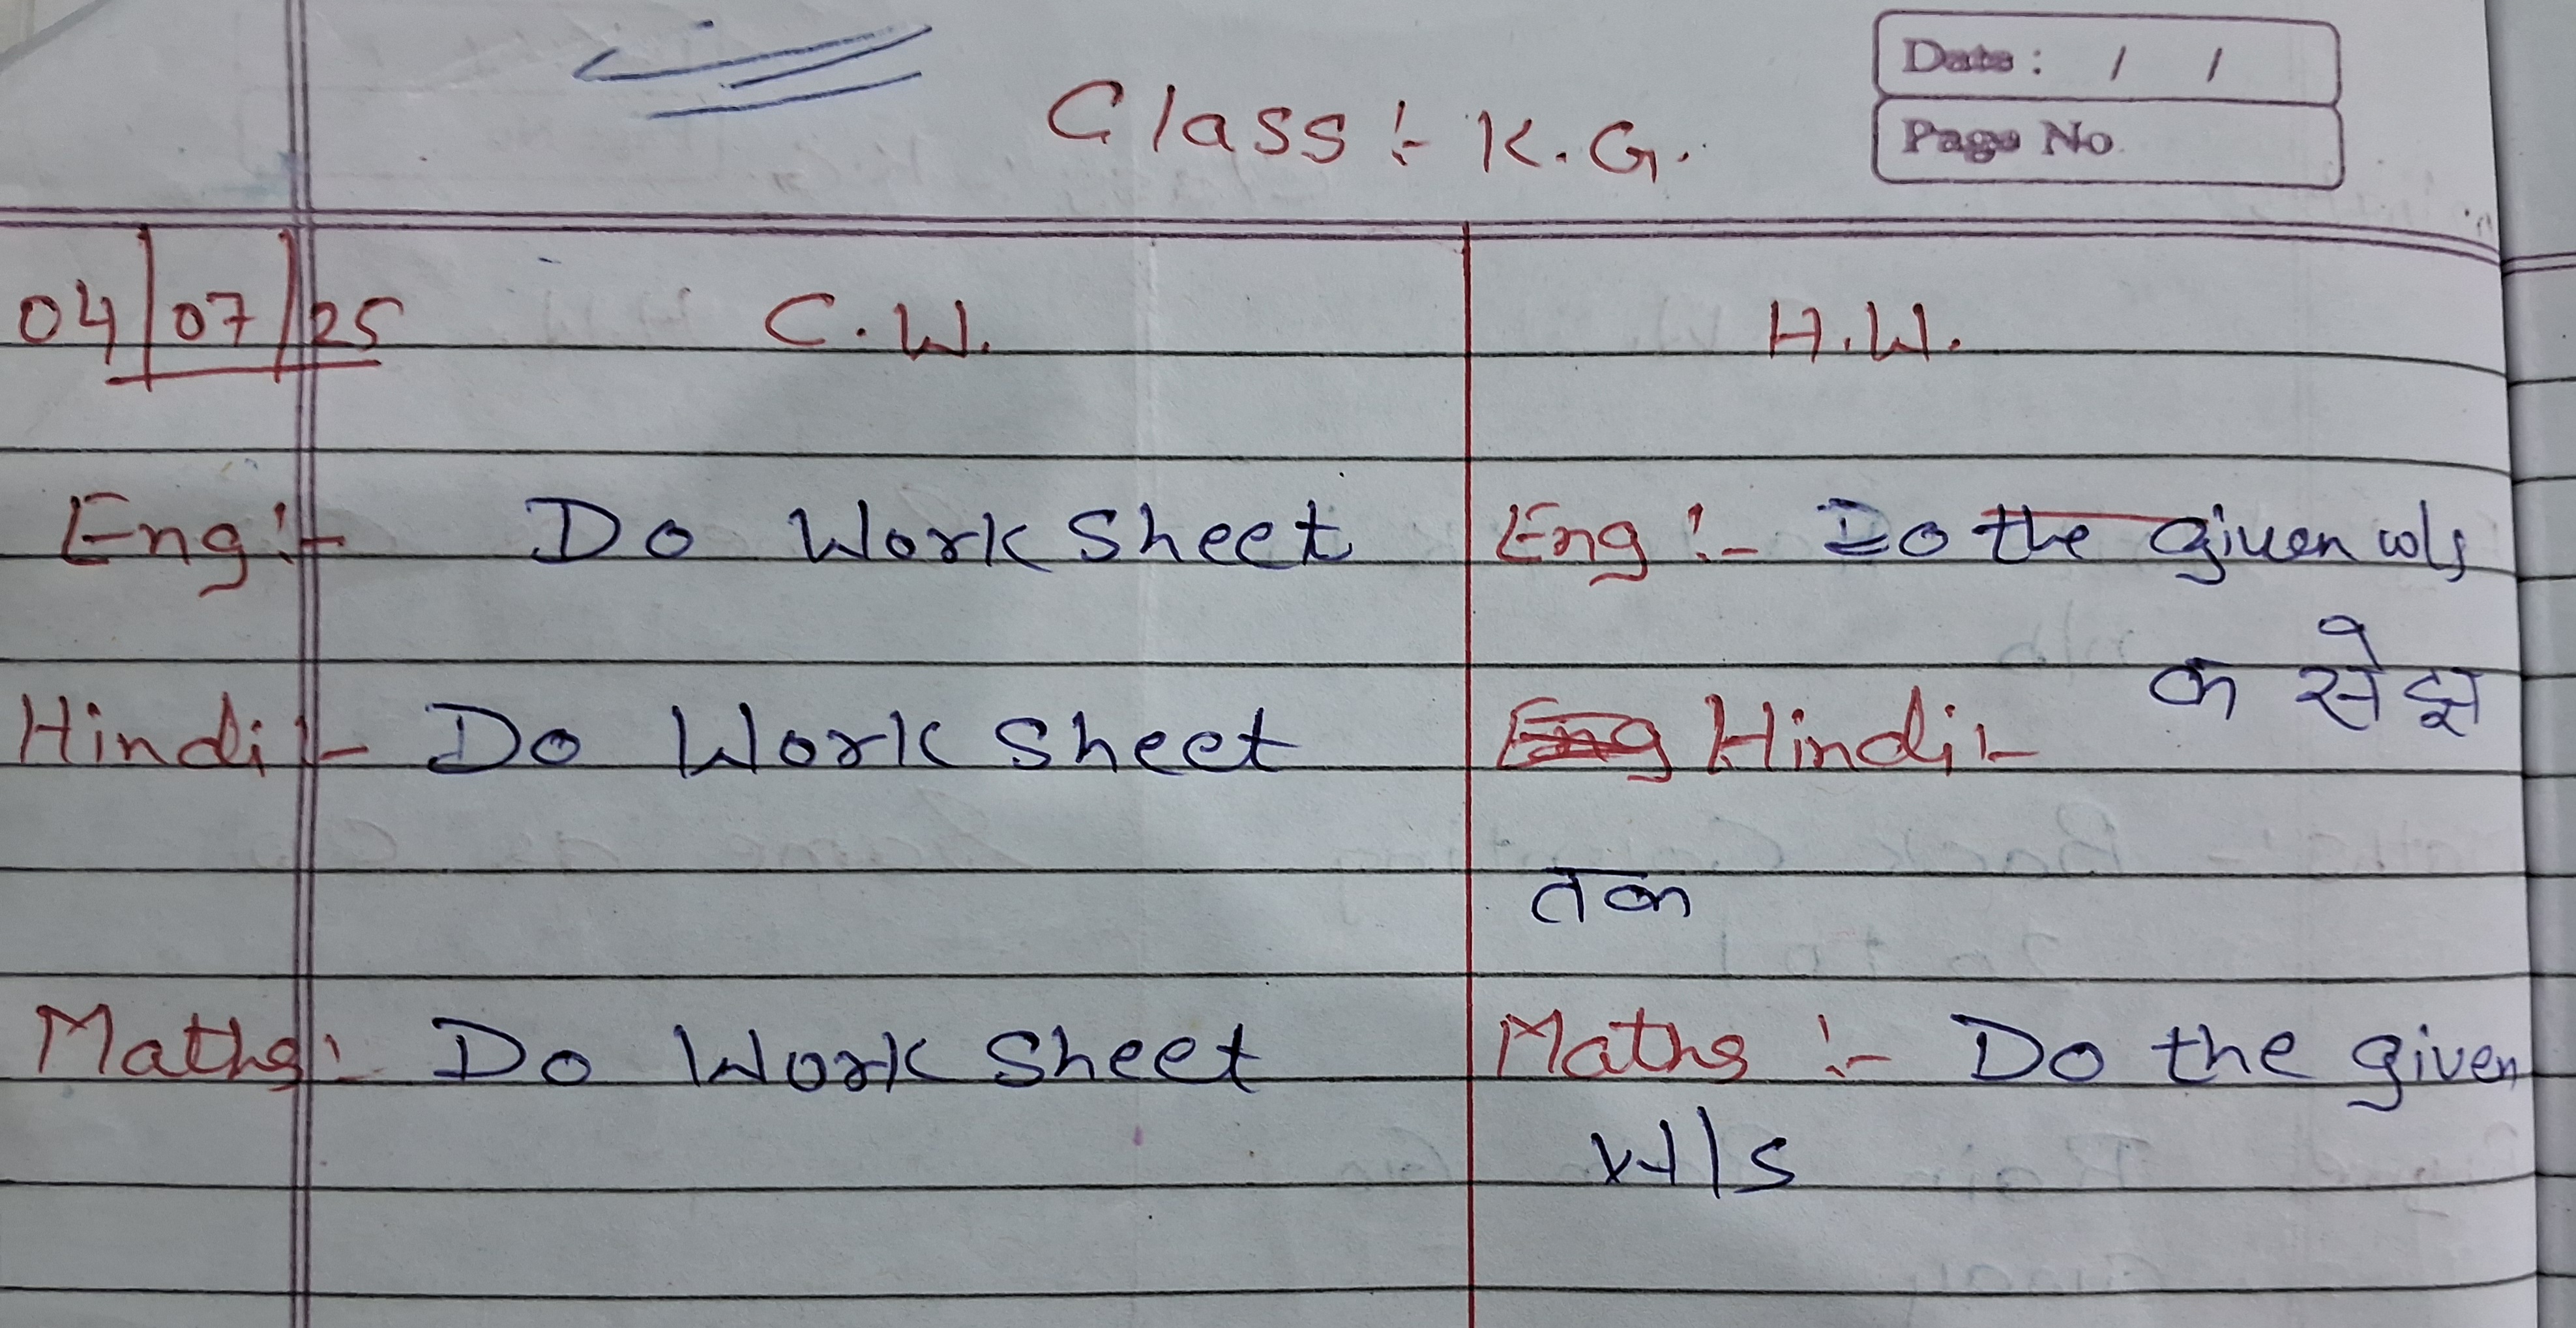 Date : / /
Page No.
Class :- K.G.
04/07/25 C.W. H.W.
Eng :- Do Work Sheet
Eng :- Do the given w/s
Hindi :- Do Work Sheet
Hindi :- क से ज्ञ
तक
Maths :- Do Work Sheet
Maths :- Do the given
W/s